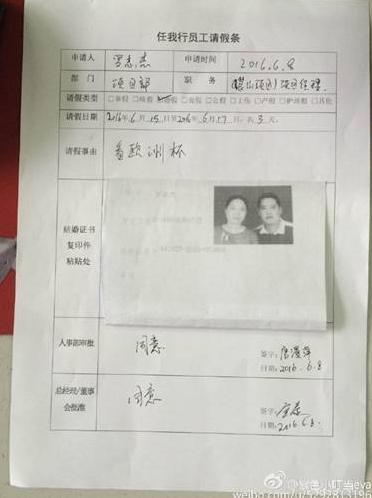 任我行员工请假条
申请人 申请时间 2016.6.8
部门 项目部 职务 项目经理
请假类型 □事假 □病假 婚假 □丧假 □公假 □工伤 □产假 □护理假 □其他
请假日期 2016年6月15日至2016年6月17日，共3天。
请假事由 看欧洲杯
结婚证书
复印件
粘贴处
人事部审批 同意
签字：
日期：2016.6.8
总经理/董事
会批准 同意
签字：
日期：2016.6.8.
@紫色小叮当eva